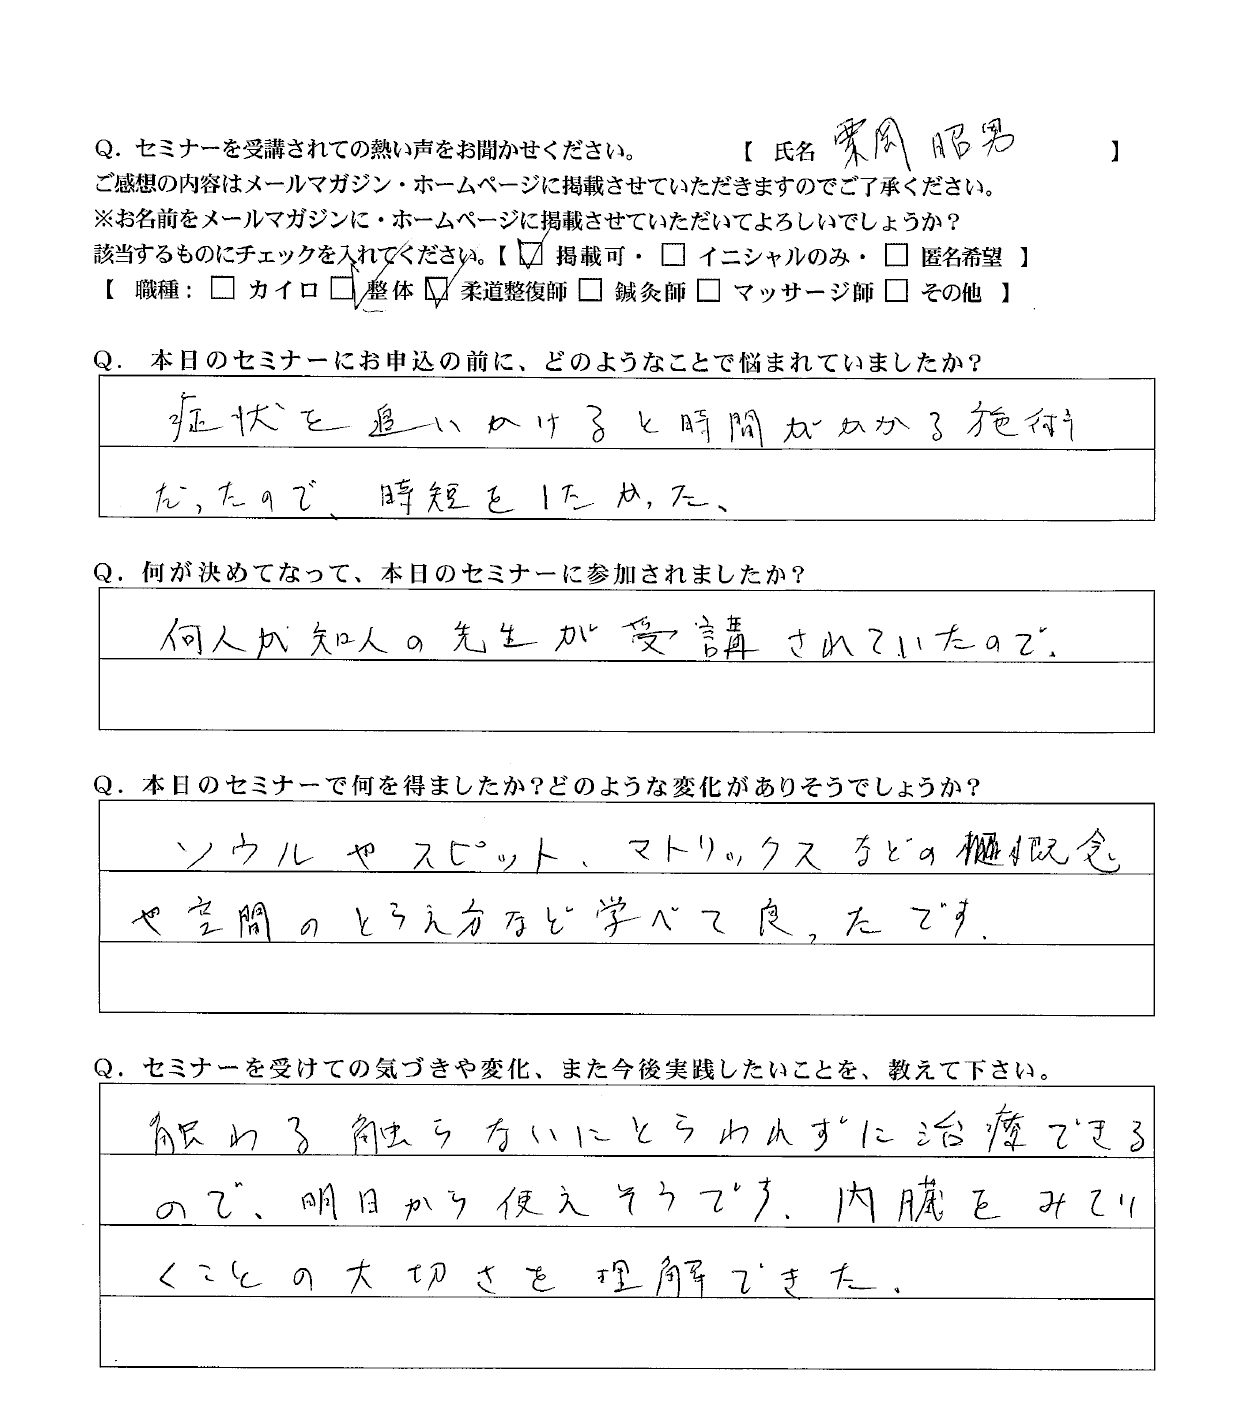 Q. セミナーを受講されての熱い声をお聞かせください。 【 氏名 栗岡 昭男 】
ご感想の内容はメールマガジン・ホームページに掲載させていただきますのでご了承ください。
※お名前をメールマガジンに・ホームページに掲載させていただいてよろしいでしょうか？
該当するものにチェックを入れてください。【 ☑ 掲載可・ □ イニシャルのみ・ □ 匿名希望 】
【 職種： □ カイロ ☑ 整体 ☑ 柔道整復師 □ 鍼灸師 □ マッサージ師 □ その他 】
Q. 本日のセミナーにお申込の前に、どのようなことで悩まれていましたか？
症状を追いかけると時間がかかる施術
だったので、時短をしたかった、
Q. 何が決めてなって、本日のセミナーに参加されましたか？
何人か知人の先生が受講されていたので.
Q. 本日のセミナーで何を得ましたか？どのような変化がありそうでしょうか？
ソウルやスピット、マトリックスなどの概念
や空間のとらえ方など学べて良ったです.
Q. セミナーを受けての気づきや変化、また今後実践したいことを、教えて下さい。
触わる触らないにとらわれずに治療できる
ので、明日から使えそうです. 内臓をみてい
くことの大切さを理解できた.